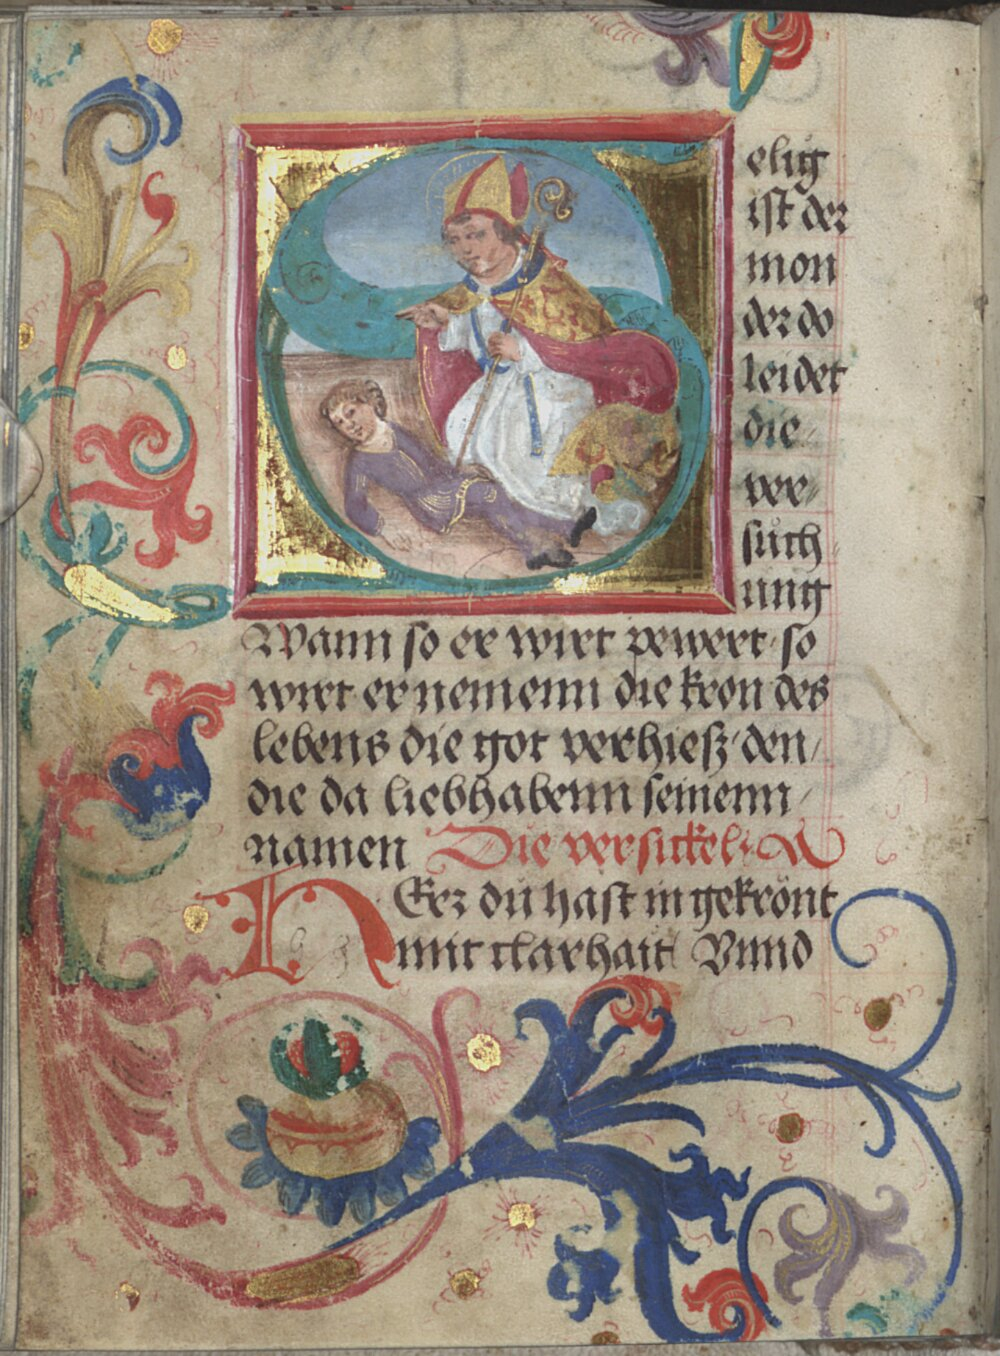 Selig
ist der
mon
der do
leidet
die
ver⸗
sůch
ung
Wann so er wirt bewert so
wirt er nemenn die kron des
lebens die got verhiesz den⸗
die da liebhabenn seinenn⸗
namen Die versickel. A
HErz du hast in gekrönt
mit clarhait Vnnd